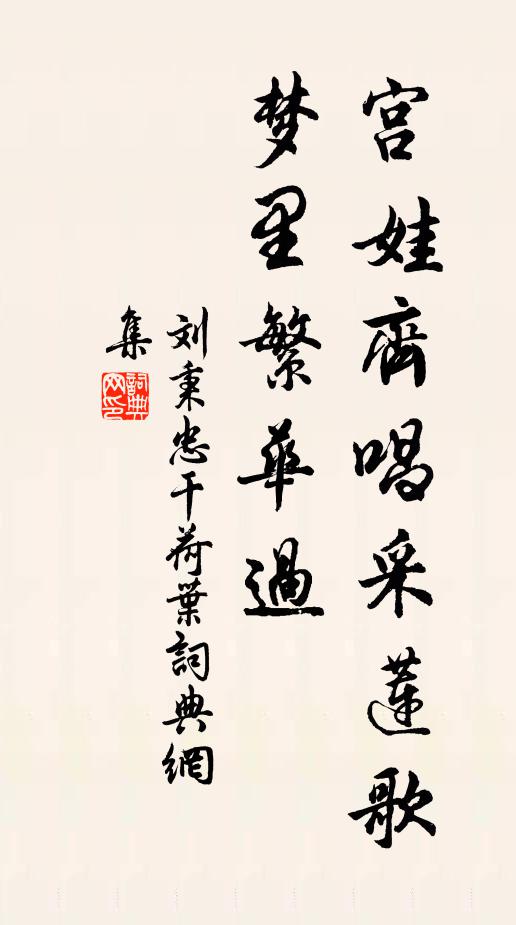 宫娃齊唱采蓮歌
梦里繁華過
刘秉忠干荷葉詞典網
集
詞典
网印